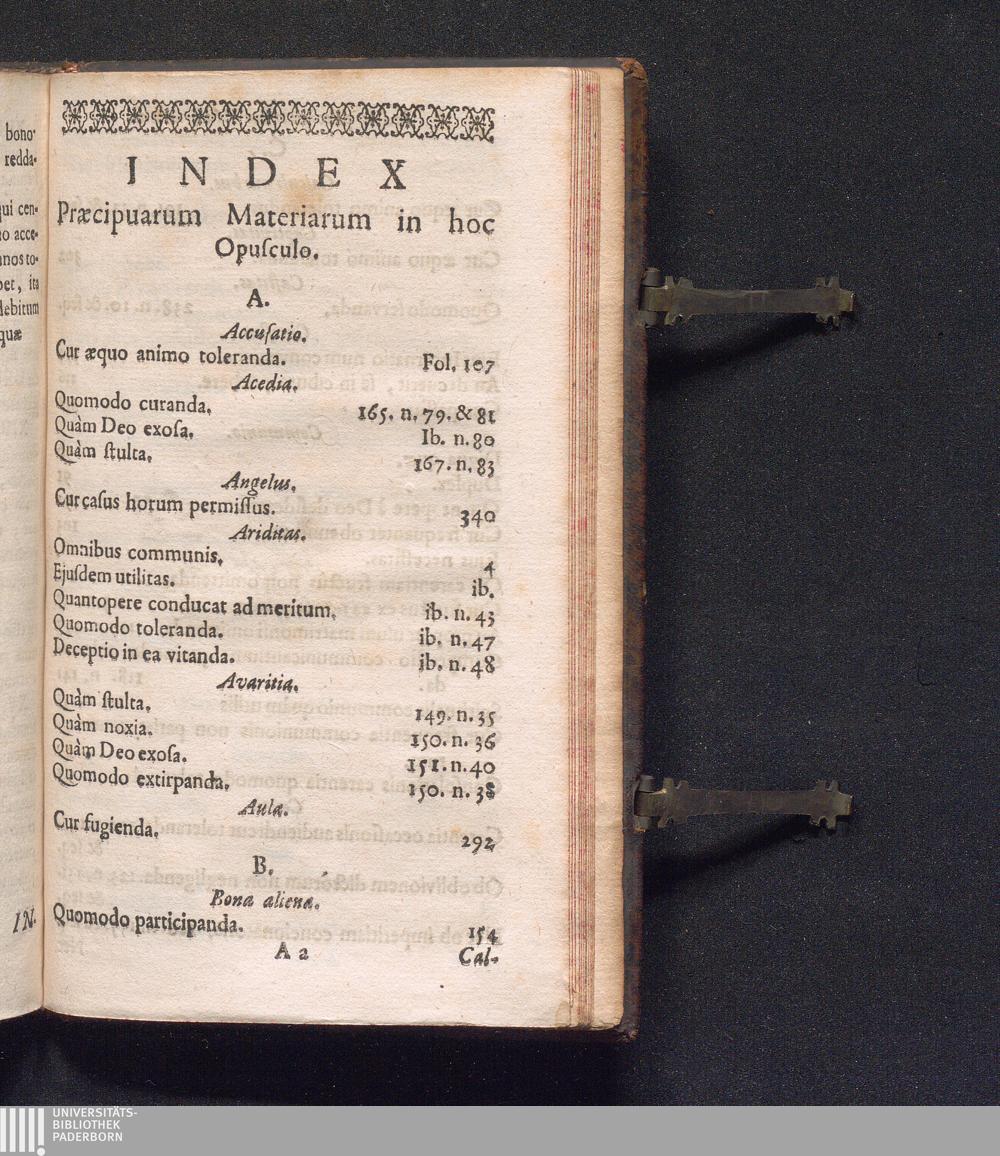 bono-
redda-
qui cen-
no acce-
nnos to-
bet, ita
debitum
quæ
IN-
INDEX
Præcipuarum Materiarum in hoc
Opuſculo.
A.
Accuſatio.
Cur æquo animo toleranda. Fol. 107
Acedia.
Quomodo curanda. 165. n. 79. & 81
Quàm Deo exoſa. Ib. n. 80
Quàm ſtulta. 167. n. 83
Angelus.
Cur caſus horum permiſſus. 340
Ariditas.
Omnibus communis. 4
Ejuſdem utilitas. ib.
Quantopere conducat ad meritum. ib. n. 43
Quomodo toleranda. ib. n. 47
Deceptio in ea vitanda. ib. n. 48
Avaritia.
Quàm ſtulta. 149. n. 35
Quàm noxia. 150. n. 36
Quàm Deo exoſa. 151. n. 40
Quomodo extirpanda. 150. n. 38
Aula.
Cur fugienda. 292
B.
Bona aliena.
Quomodo participanda. 154
A a Cal-
UNIVERSITÄTS-
BIBLIOTHEK
PADERBORN